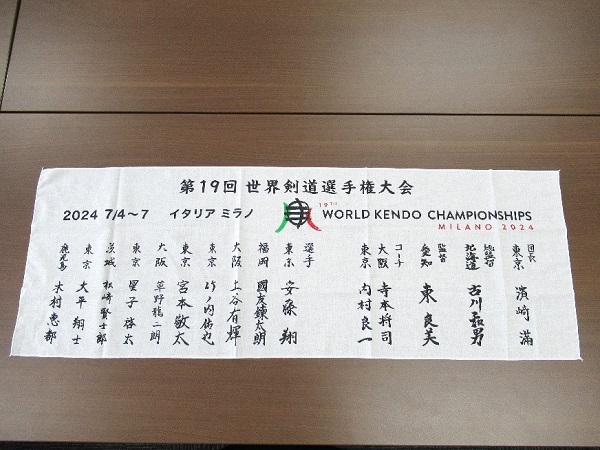 第19回 世界剣道選手権大会
2024 7/4～7 イタリア ミラノ
19TH
WORLD KENDO CHAMPIONSHIPS
MILANO 2024
団長
東京 濱﨑 満
総監督
北海道 古川和男
監督
愛知 東 良美
コーチ
大阪 寺本将司
東京 内村良一
選手
東京 安藤 翔
福岡 國友鍊太朗
大阪 土谷有輝
東京 竹ノ内佑也
東京 宮本敬太
大阪 草野龍二朗
東京 星子啓太
茨城 松﨑賢士郎
東京 大平翔士
鹿児島 木村恵都